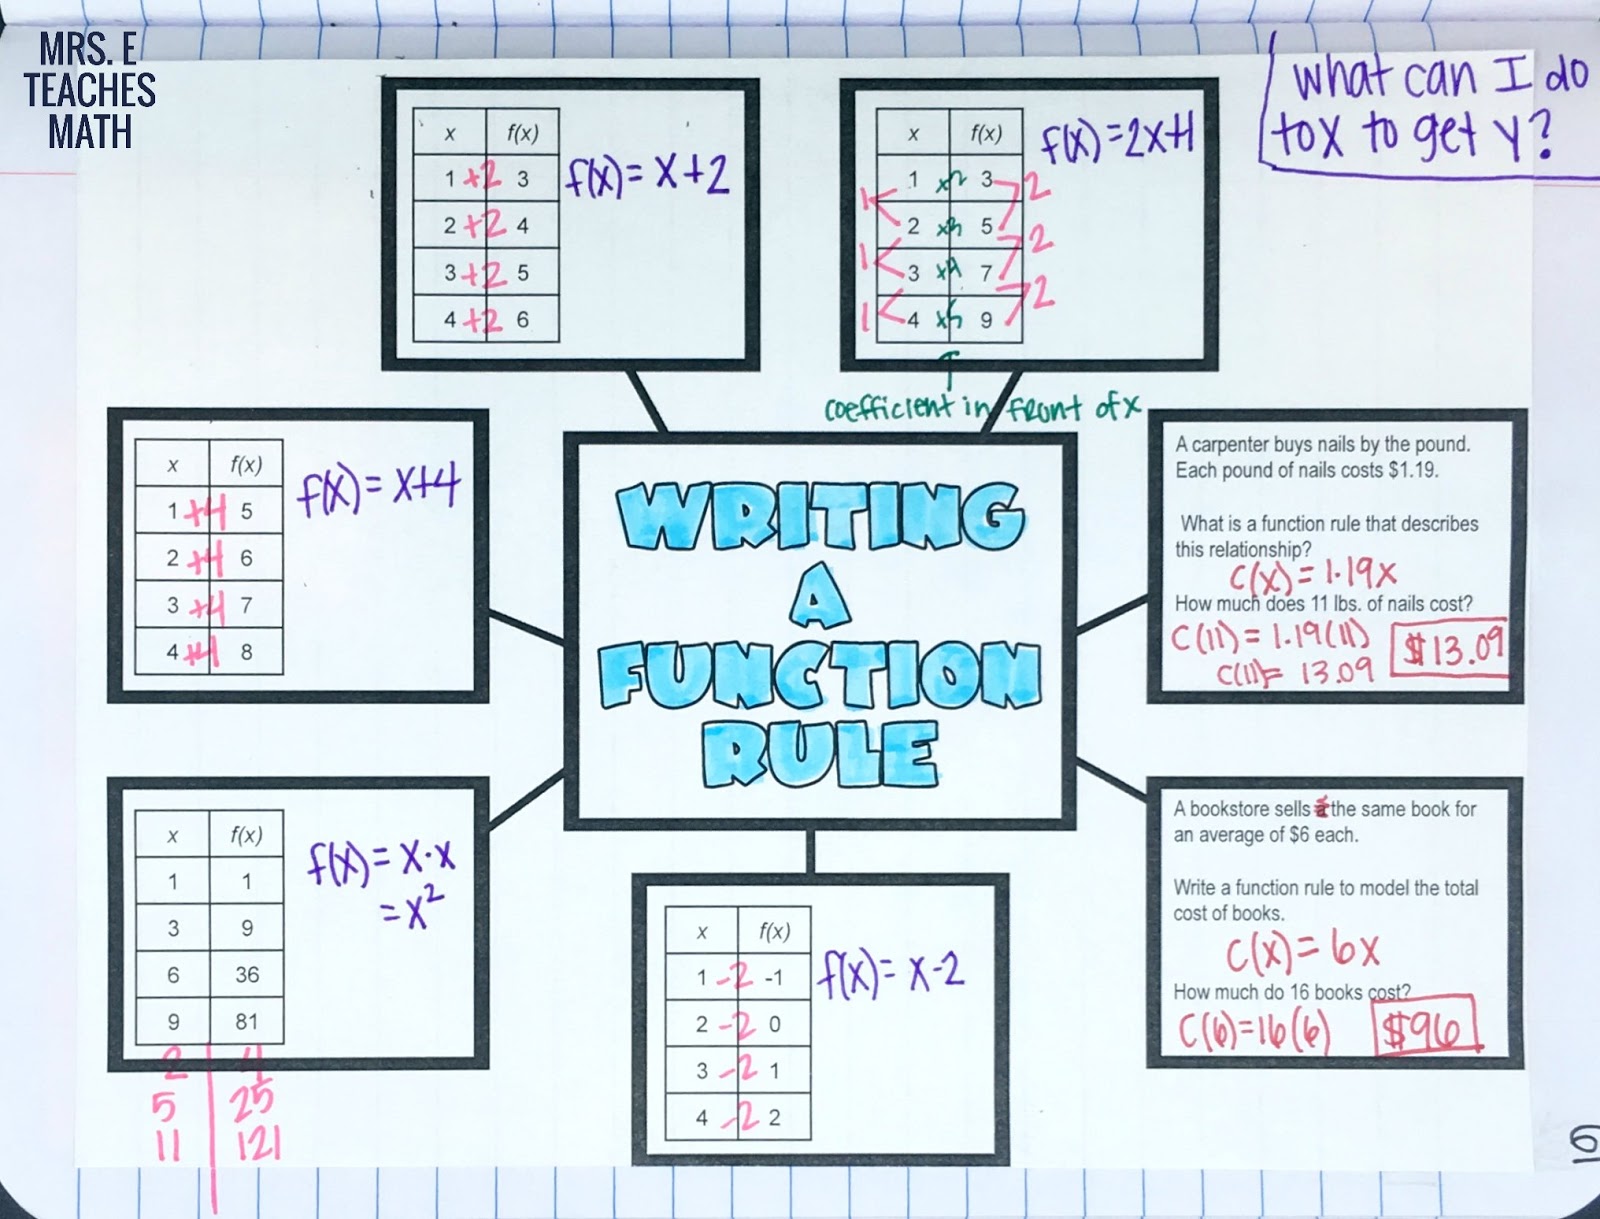 MRS. E
TEACHES
MATH
what can I do
to x to get y?
x f(x)
1 +2 3
2 +2 4
3 +2 5
4 +2 6
f(x) = x+2
x f(x)
1 x2 3
2 5
3 7
4 9
1 1 1
2 2 2
f(x)=2x+1
coefficient in front of x
x f(x)
1 +4 5
2 +4 6
3 +4 7
4 +4 8
f(x) = x+4
WRITING
A
FUNCTION
RULE
A carpenter buys nails by the pound.
Each pound of nails costs $1.19.
What is a function rule that describes
this relationship?
C(x) = 1.19x
How much does 11 lbs. of nails cost?
C(11) = 1.19(11)
C(11)= 13.09
$13.09
x f(x)
1 1
3 9
6 36
9 81
2 4
5 25
11 121
f(x) = x·x
= x²
x f(x)
1 -2 -1
2 -2 0
3 -2 1
4 -2 2
f(x)= x-2
A bookstore sells the same book for
an average of $6 each.
Write a function rule to model the total
cost of books.
C(x) = 6x
How much do 16 books cost?
C(6)=16(6)
$96